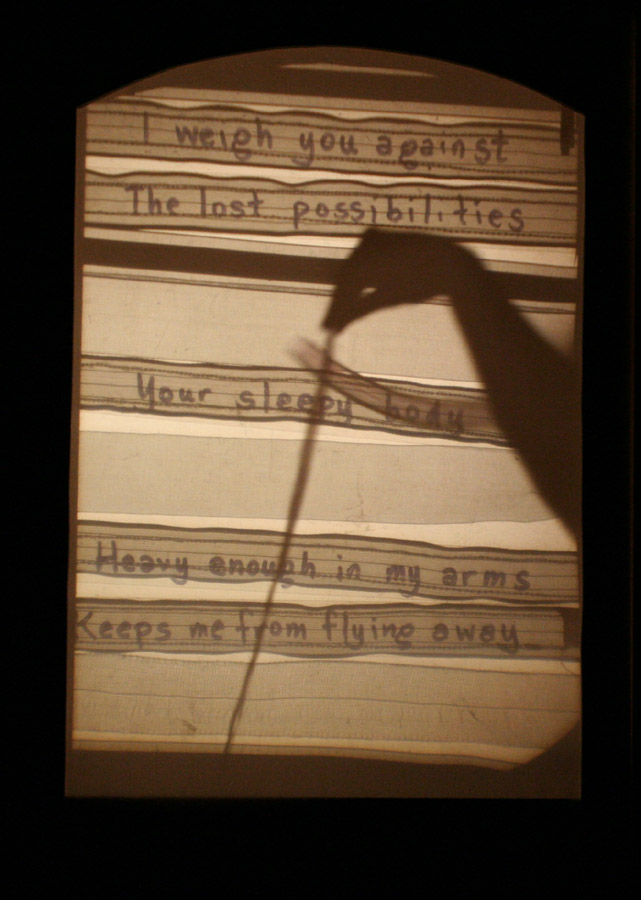 I weigh you against
The lost possibilities
Your sleepy body
Heavy enough in my arms
Keeps me from flying away